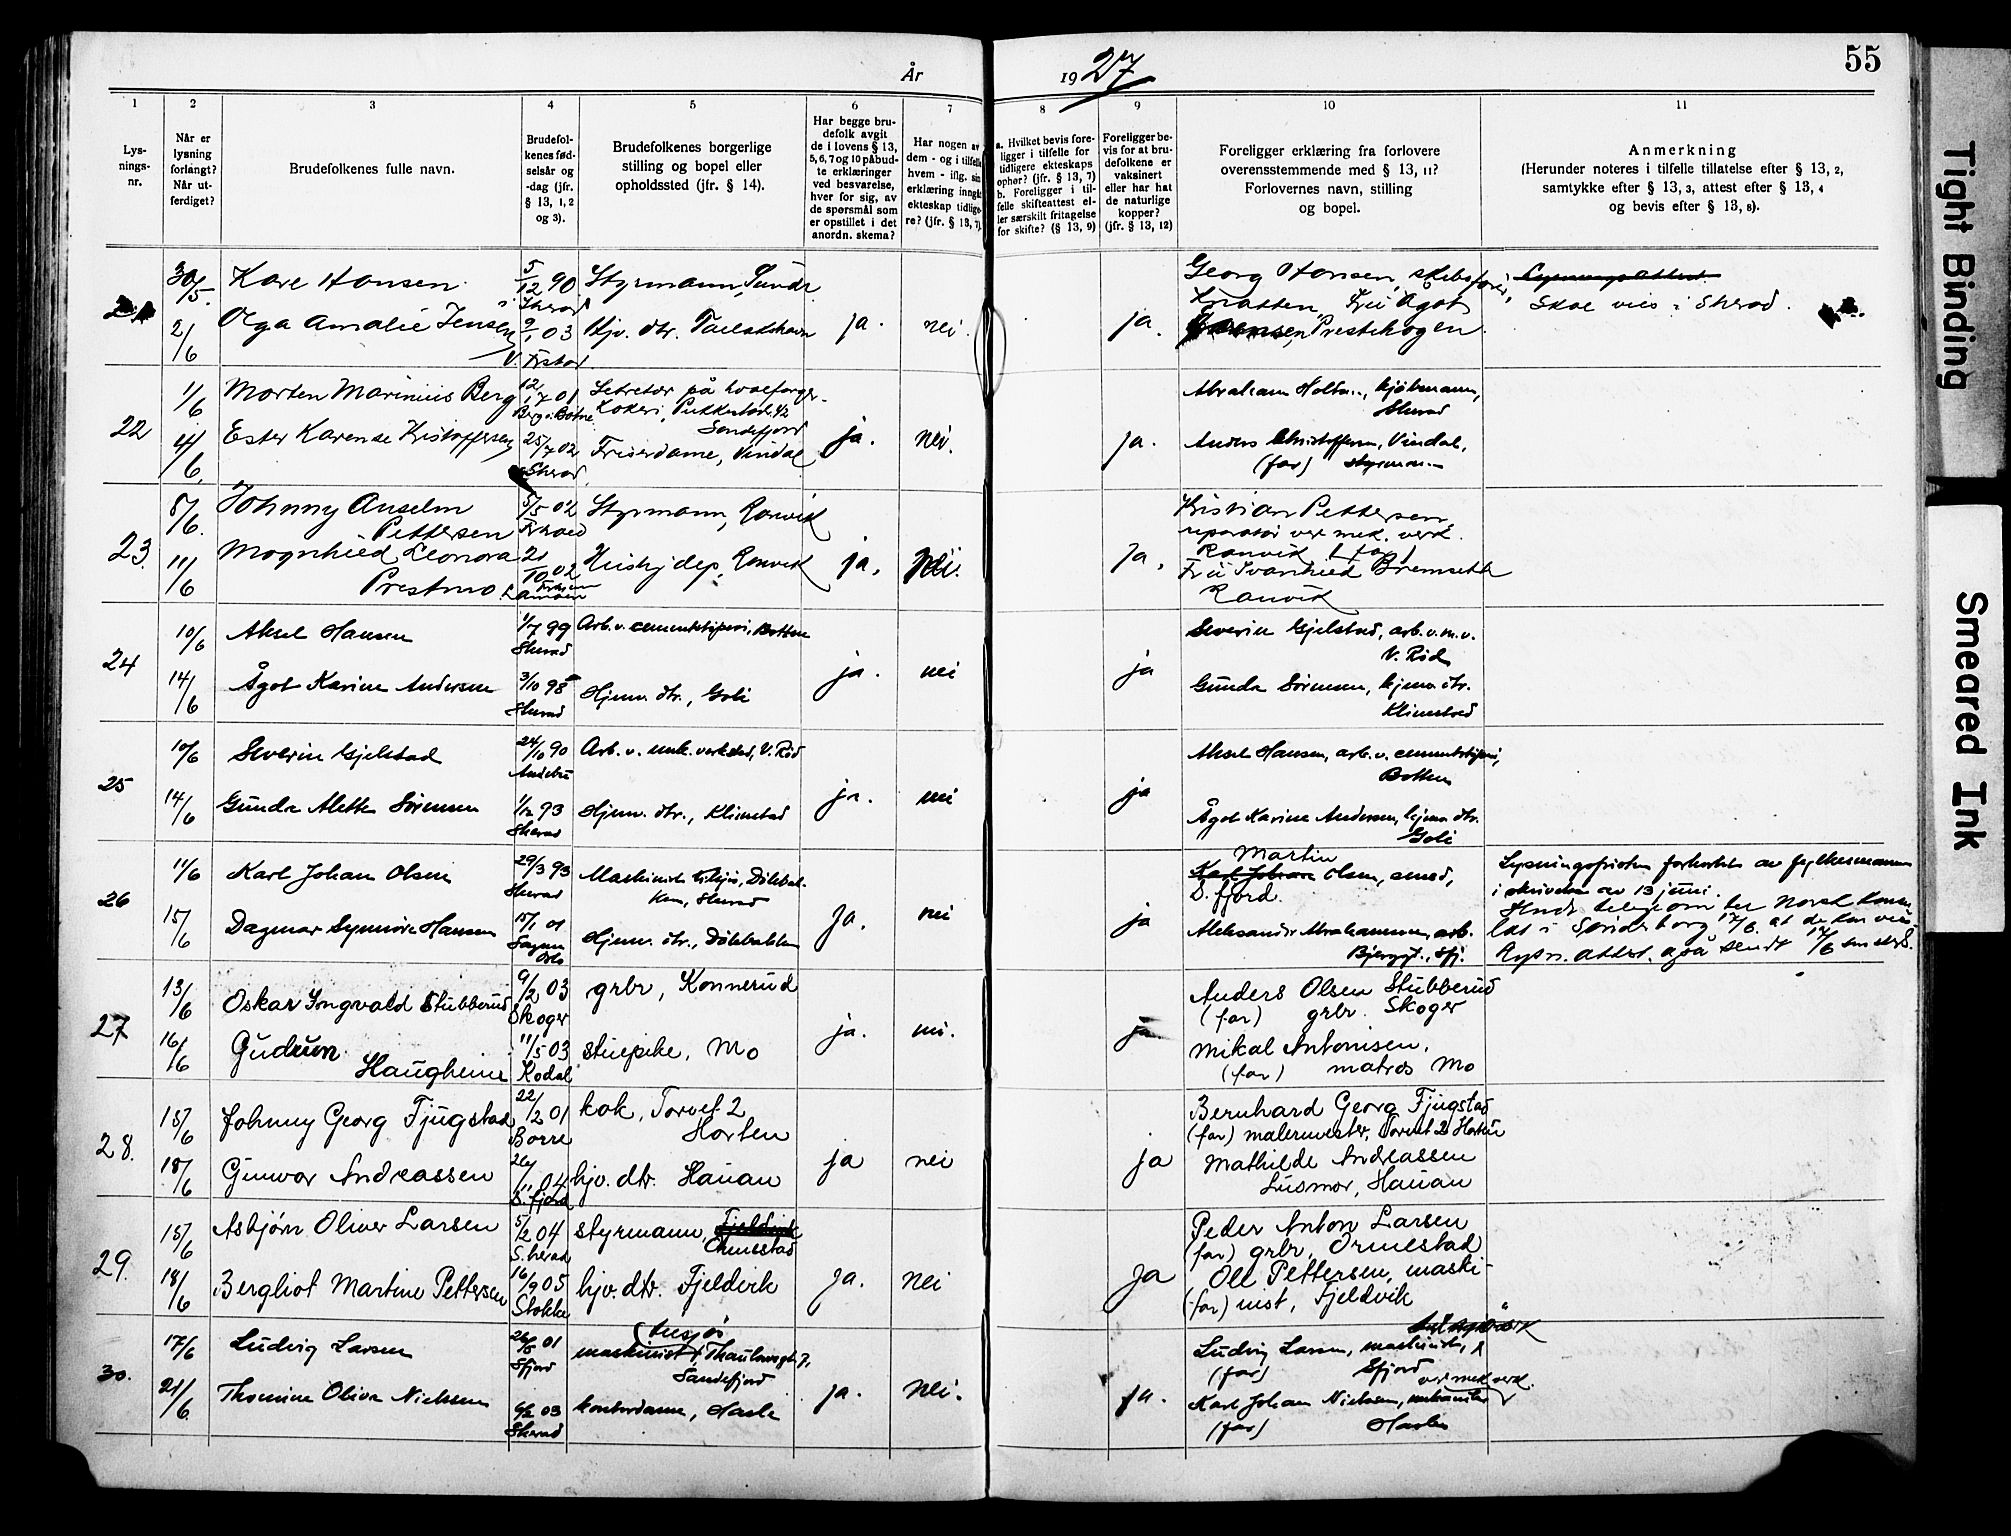 År
1927
55
1
2
3
4
5
6
7
8
9
10
11
Lys-
nings-
nr.
Når er
lysning
forlangt?
Når ut-
ferdiget?
Brudefolkenes fulle navn.
Brudefol-
kenes fød-
selsår og
-dag (jfr.
§ 13, 1, 2
og 3).
Brudefolkenes borgerlige
stilling og bopel eller
opholdssted (jfr. § 14).
Har begge bru-
defolk avgit
de i lovens § 13,
5, 6, 7 og 10 påbud-
te erklæringer
ved besvarelse,
hver for sig, av
de spørsmål som
er opstillet i det
anordn. skema?
Har nogen av
dem - og i tilfelle
hvem - iflg. sin
erklæring inngåt
ekteskap tidlige-
re? (jfr. § 13, 7)
a. Hvilket bevis fore-
ligger i tilfelle for
tidligere ekteskaps
ophør? (jfr. § 13, 7)
b. Foreligger i til-
felle skifteattest el-
ler særskilt fritagelse
for skifte? (§ 13, 9)
Foreligger be-
vis for at bru-
defolkene er
vaksinert
eller har hat
de naturlige
kopper?
(jfr. § 13, 12)
Foreligger erklæring fra forlovere
overensstemmende med § 13, 11?
Forlovernes navn, stilling
og bopel.
Anmerkning
(Herunder noteres i tilfelle tillatelse efter § 13, 2,
samtykke efter § 13, 3, attest efter § 13, 4
og bevis efter § 13, 8).
30/5 Kare Hansen 5/12 90 Styrmann,
i Sherad
2/6 Olga Amalie Jensen 9/1 03 Hjv. dtr.
ja. nei. ja.
Georg Hansen, skibsfører,
Fru Agot
Prestehagen
Lysningsattest
Skal vies i Sherad.
22
1/6 Morten Marinius Berg 12/7 01 Sekretær på hvalfanger-
kokeri,
Sandefjord
4/6 Ester Karense Kristoffersen 25/7 02 Friserdame, Vindal
Sherad
ja. nei. ja.
Abraham kjøbmann,
Sherad
Anders Christoffersen, Vindal,
(far) styrmann
23.
8/6 Johnny Anselm
Pettersen 5/5 02 Styrmann, Ranvik
11/6 Magnhild Leonora
Prestmo 21/10 02 Ranvik
ja, nei. Ja,
Kristian Pettersen,
reparatør ver mek. verk.
Ranvik (far)
Ranvik
24
10/6 Aksel Hansen 1/7 99 Arb. v. cementstøperi, Botten
Sherad
14/6 Ågot Karine Andersen 3/10 98 Hjem. dtr., Goli
Sherad
ja. nei ja
Severin Gjelstad, arb. v. m. v.
V. Rød
Gunda Sørensen, hjem. dtr.
Klinestad
25
10/6 Severin Gjelstad 24/10 90 Arb. v. mek. verksted, V. Rød
Andebu
14/6 Gunda Alette Sørensen 1/12 93 Hjem. dtr., Klinestad
Sherad
ja. nei ja
Aksel Hansen, arb. v. cementstøperi,
Botten
Ågot Karine Andersen, hjem. dtr.
Goli
26
11/6 Karl Johan Olsen 29/3 93 Maskinist
Sherad
15/6 Dagmar Synnøve Hansen 15/1 01 Hjem. dtr., Dølebakken
Oslo
Ja. nei ja
Martin
Karl Johan Olsen, smed,
S.fjord.
Aleksander Abrahamsen, arb.
Lysningsfristen forkortet av fylkesmannen
i skrivelse av 13 juni.
Sendt telegram ter norsk konsu-
lat i Sønderborg 17/6. at de kan vies
Lysn. attest. også sendt 17/6
27
13/6 Oskar Yngvald Stubberud 9/2 03 grbr, Konnerud
Skoger
16/6 Gudrun
Haugheim 11/5 03 stuepike, Mo
Kodal
ja. nei. ja.
Anders Olsen Stubberud
(far) grbr. Skoger
Mikal Antonisen,
(far) matros Mo
28.
15/6 Johnny Georg Fjugstad 22/2 01 kok, Torvet 2
Borre Horten
18/6 Gunvor Andreassen 26/11 04 hjv. dtr. Hauan
S.fjord
ja nei ja
Bernhard Georg Fjugstad
(far) malermester, Torvet 2 Horten
Mathilde Andreassen
Husmor, Hauan
29.
15/6 Asbjørn Oliver Larsen 5/2 04 styrmann, Fjeldvik
S.herad Ormestad
18/6 Bergliot Martine Pettersen 16/9 05 hjv. dtr. Fjeldvik
Stokke
Ja. nei Ja
Peder Anton Larsen
(far) grbr, Ormestad
Ole Pettersen, maski-
(far) nist, Fjeldvik
30.
17/6 Ludvig Larsen 26/5 01 (tilsjøs
Sfjord maskinist, Thaulowsgt. 7,
Sandefjord
21/6 Thomine Olivia Nielsen 03 kontordame, Hasle
Sherad
ja. nei. ja.
Ludvig Larsen, maskinist,
(far) Sfjord
ver mek verk.
Karl Johan Nielsen, mekaniker
(far) Hasle
Tight Binding
Smeared Ink